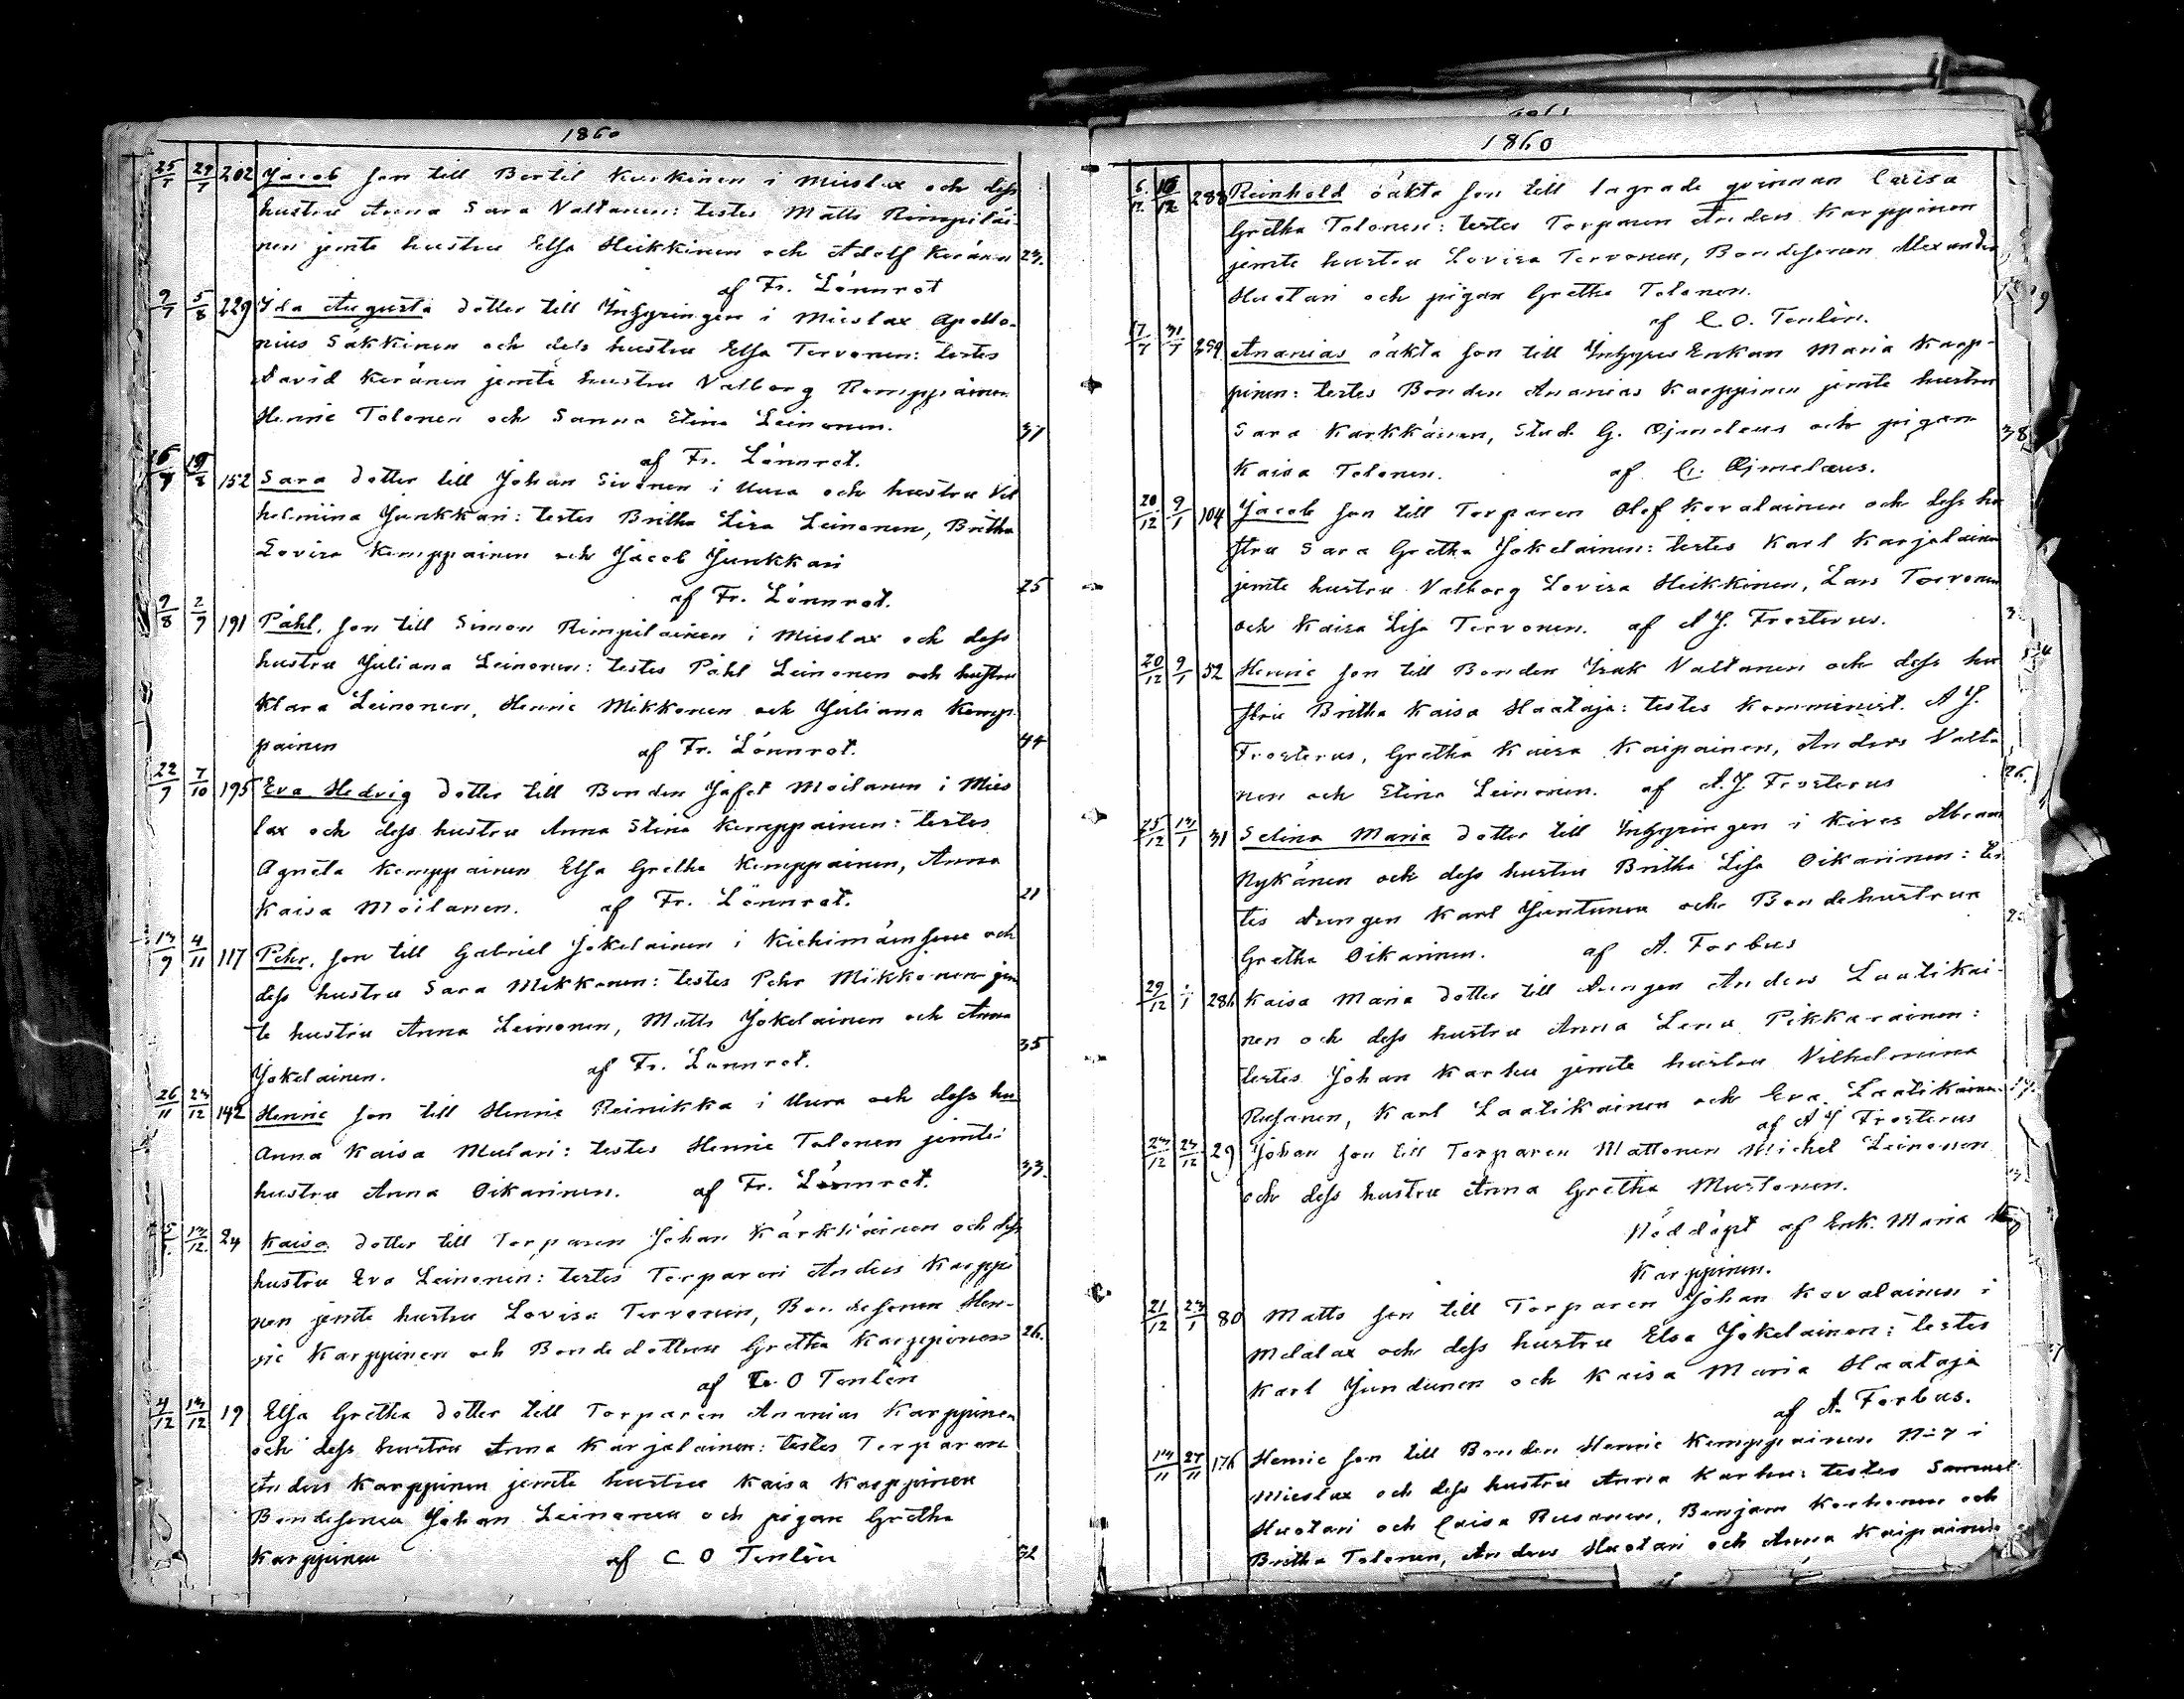 1860
25/7 29/7 202 Jacob son till Bertil Keskinen i Mieslax och dess
hustru Anna Sara Valtanen: testes Matts Rimpiläi-
nen jemte hustru Elsa Heikkinen och Adolf Keränen 23.
af Fr. Lönnrot
9/7 5/8 229 Ida Augusta dotter till Inhysingen i Mieslax Apollo-
nius Säkkinen och dess hustru Elsa Tervonen: testes
David Keränen jemte hustru Valborg Kemppainen
Henric Tolonen och Sanna Stina Leinonen. 37
af Fr. Lönnrot.
152 Sara dotter till Johan Sivonen i Uura och hustru Vil
helmina Junkkari: testes Britha Lisa Leinonen, Britha
Lovisa Kemppainen och Jacob Junkkari
af Fr. Lönnrot. 25
9/8 2/9 191 Påhl, son till Simon Rimpiläinen i Mieslax och dess
hustru Juliana Leinonen: testes Påhl Leinonen och hustru
Klara Leinonen, Henric Mikkonen och Juliana Kemp-
painen af Fr. Lönnrot. 44
22/9 7/10 195 Eva Hedvig dotter till Bonden Jafet Moilanen i Mies
lax och dess hustru Anna Stina Kemppainen: testes
Agneta Kemppainen Elsa Gretha Kemppainen, Anna
Kaisa Moilanen. af Fr. Lönnrot. 21
13/9 4/11 117 Pehr, son till Gabriel Jokelainen i Kiehimäensuu och
dess hustru Sara Mikkonen: testes Pehr Mikkonen jem
te hustru Anna Leinonen, Matts Jokelainen och Anna
Jokelainen. af Fr. Lönnrot. 35
26/11 23/12 142 Henric son till Henric Reinikka i Uura och dess hu
Anna Kaisa Mulari: testes Henric Tolonen jemte
hustru Anna Oikarinen. af Fr. Lönnrot. 33.
13/12 24 Kaisa dotter till Torparen Johan Kärkkäinen och dess
hustru Eva Leinonen: testes Torparen Anders Karppi
nen jemte hustru Lovisa Tervonen, Bondesonen Hen-
ric Karppinen och Bondedottren Gretha Karppinen 26.
af C. O Tenlén
4/12 13/12 19 Elsa Gretha dotter till Torparen Ananias Karppinen
och dess hustru Anna Karjalainen: testes Torparen
Anders Karppinen jemte hustru Kaisa Karppinen
Bondesonen Johan Leinonen och pigan Gretha
Karppinen af C O Tenlén 32
1860
6/12 16/12 288 Reinhold oäkta son till lagrade qvinnan Caisa
Gretha Tolonen: testes Torparen Anders Karppinen
jemte hustru Lovisa Tervonen, Bondesonen Alexander
Huotari och pigan Gretha Tolonen.
af C. O. Tenlén.
17/7 31/7 259 Ananias oäkta son till Inhyses Enkan Maria Karp-
pinen: testes Bonden Ananias Karppinen jemte hustru
Sara Karkkäinen, Stud. G. Ojmelæus och pigan 38
Kaisa Tolonen. af G. Ojmelæus.
20/12 9/1 104 Jacob son till Torparen Olof Kovalainen och dess hu
stru Sara Gretha Jokelainen: testes Karl Karjalainen
jemte hustru Valborg Lovisa Heikkinen, Lars Tervonen
och Kaisa Lisa Tervonen. af A J. Frosterus. 3
20/12 9/1 52 Henric son till Bonden Isak Valtanen och dess hu
stru Britha Kaisa Haataja: testes Komminist. A J.
Frosterus, Gretha Kaisa Kaipainen, Anders Valta
nen och Stina Leinonen. af A. J. Frosterus 26.
25/12 13/1 31 Selina Maria dotter till Inhysingen i Kives Abram
Nykänen och dess hustru Britha Lisa Oikarinen: tes
tis Drengen Karl Juntunen och Bondehustrun
Gretha Oikarinen. af A. Forbus
29/12 286 Kaisa Maria dotter till Drengen Anders Laatikai-
nen och dess hustru Anna Lena Pikkarainen:
testes Johan Karhu jemte hustru Vilhelmina
Rusanen, Karl Laatikainen och Eva Laatikainen
af A J Frosterus
23/12 23/12 29 Johan son till Torparen Mattonen Michel Leinonen
och dess hustru Anna Gretha Mustonen.
Nöddöpt af Enk. Maria
Karppinen.
21/12 23/1 80 Matts son till Torparen Johan Kovalainen i
Melalax och dess hustru Elsa Jokelainen: testes
Karl Jundunen och Kaisa Maria Haataja
af A. Forbus.
14/11 27/11 176 Henric son till Bonden Henric Kemppainen N:o 7 i
Mieslax och dess hustru Anna Karhu: testes Samuel
Huotari och Caisa Rusanen, Benjam Korhonen och
Britha Tolonen, Anders Huotari och Anna Kaipainen